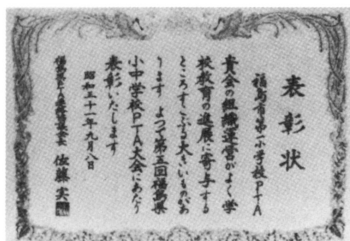 表彰状
福島市第一小学校PTA
貴会の組織運営がよく学
校教育の進展に寄与する
ところすこぶる大きいものがあ
ります よつて第五回福島県
小中学校PTA大会にあたり
表彰いたします
昭和三十一年九月八日
佐藤実